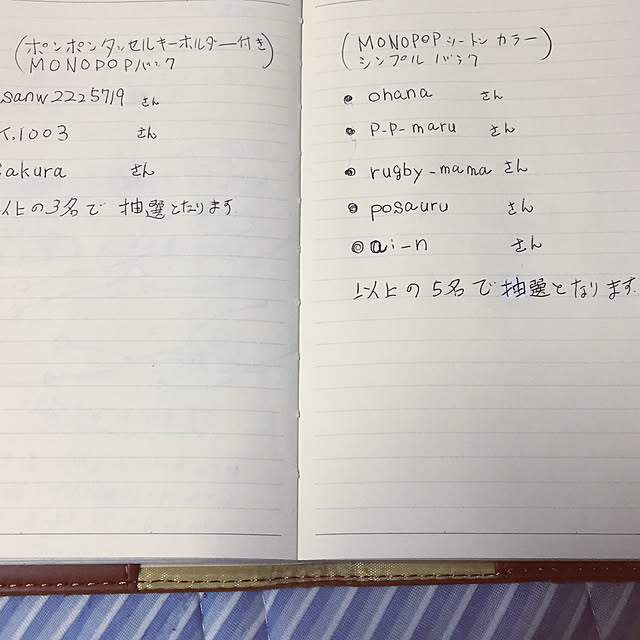 (ポンポンタッセルキーホルダー付き
MONOPOPバック)
sanw2225719 さん
K.1003 さん
sakura さん
以上の3名で 抽選となります
(MONOPOPシートン カラー
シンプル バック)
ohana さん
P-P-maru さん
rugby-mama さん
posauru さん
ai-n さん
以上の 5名で 抽選となります.